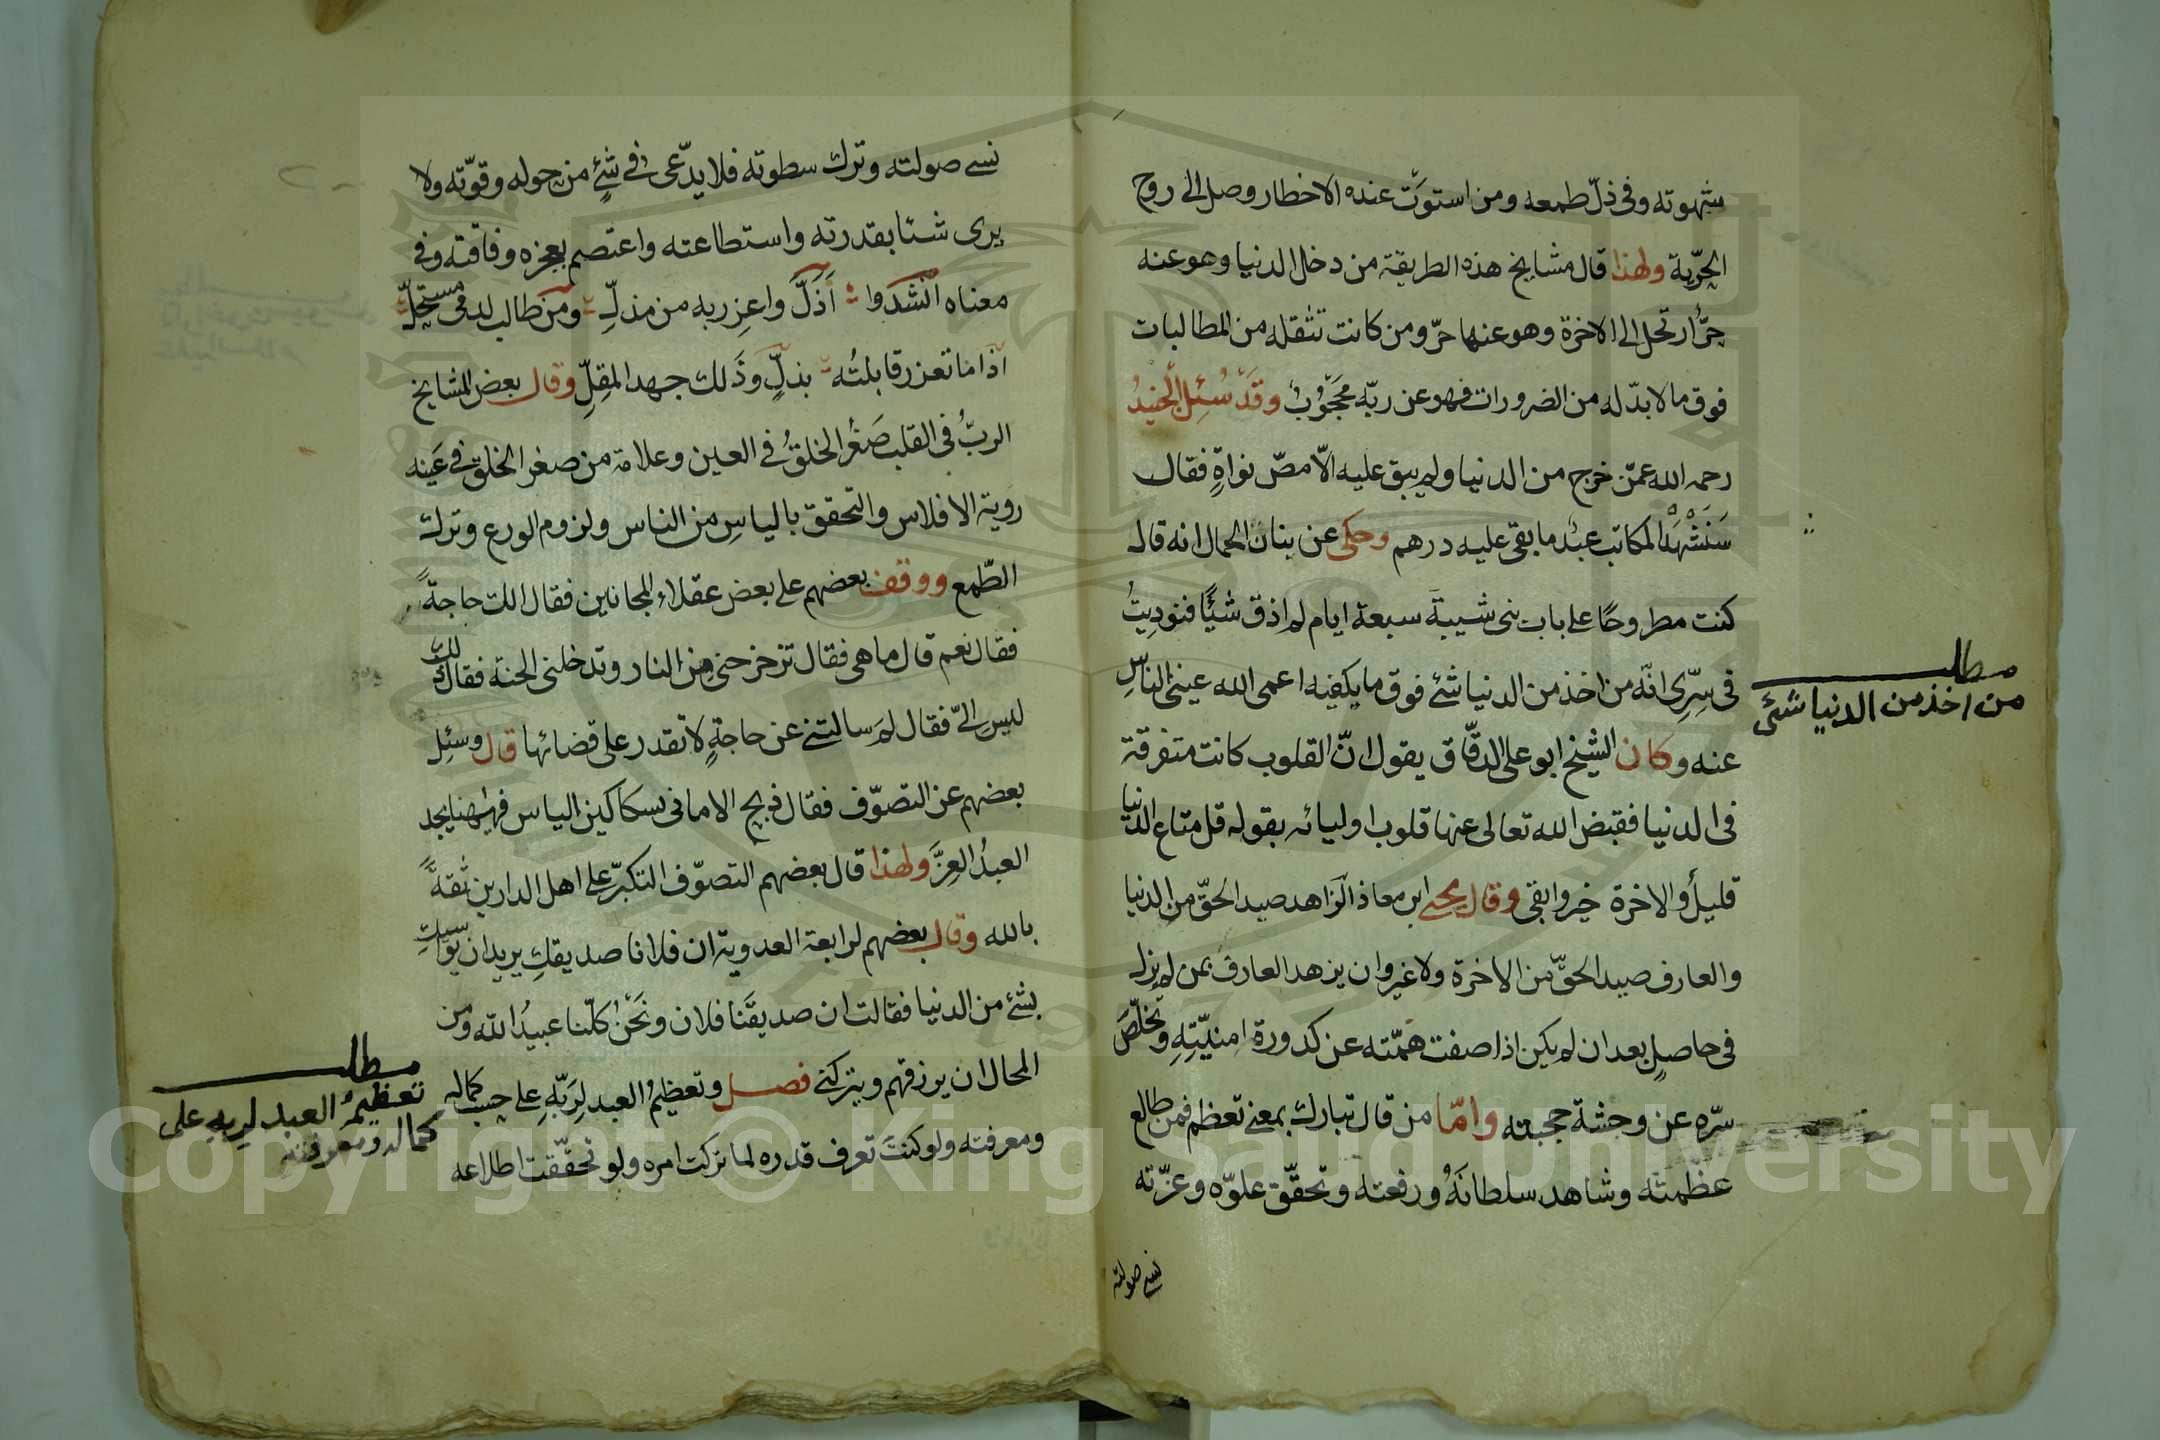 شهوته وفى ذلّ طمعه ومن استوَت عنده الاخطار وصل الى روح
الحرّية ولهذا قال مشايخ هذه الطريقة من دخل الدنيا وهو عنه
حرٌّ ارتحل الى الاخرة وهو عنها حرّ ومن كانت تثقله من المطالبات
فوق ما لابدّ له من الضرورات فهو عن ربّه محجوبٌ وقد سُئِل الجنيدُ
رحمه الله عمّن خرج من الدنيا ولم يبق عليه الّا مصّ نواةٍ فقال
المكاتب عبدٌ ما بقى عليه درهم وحكى عن بنان الحمال انه قال
كنت مطروحًا على باب بنى شيبة سبعة ايام لم اذق شيًا فنودِيتُ
فى سِرِّى انّه من اخذ من الدنيا شئ فوق ما يكفيه اعمى الله عينى الناسِ
عنه وكان الشيخ ابو على الدقّاق يقول انّ القلوب كانت متفرقة
فى الدنيا فقبض الله تعالى عنها قلوب اوليائه بقوله قل متاع الدنيا
قليلٌ والاخرة خير وابقى وقال يحيى ابن معاذ الزاهد صيد الحقّ من الدنيا
والعارف صيد الحقّ من الاخرة ولا غيروان يزهد العارف بمن لم يزل
فى حاصلٍ بعد ان لم يكن اذا صفت همّته عن كدورة امنيّتِهِ وتخلّصَ
سرّه عن وحشة حجبته وامّا من قال تبارك بمعنى تعظم فمن طالع
عظمته وشاهد سلطانَهُ ورفعته وتحقّق علوّه وعزّته
نسى صولته
مطلب
من اخذ من الدنيا شئ
نسى صولته وترك سطوته فلا يدّعى فى شئٍ من حوله وقوّته ولا
يرى شئا بقدرته واستطاعته واعتصم بعجزه وفاقته وفى
معناه انشدوا أذلّ واعِز ربه من مذلِّ ومن طالب لدمى مستحلِّ
اذا ما تعزز قابلتُه بذلٍّ وذلك جهد المقلِّ وقال بعض المشايخ
الربُّ فى القلب صَغُر الخلقُ فى العين وعلامة من صغر الخلق فى عَينه
روية الافلاس والتحقق بالياسِ من الناس ولزوم الورع وترك
الطّمع ووقف بعضهم على بعض عقلاء المجانين فقال الك حاجةً
فقال نعم قال ما هى فقال تزحزحنى من النار وتدخلنى الجنة فقال ذلك
ليس الىّ فقال لمَ سالتنى عن حاجةٍ لا تقدر على قضائها قال وسئِل
بعضهم عن التصوّف فقال ذبح الامانى بسكاكين الياس فهٰهنا يجد
العبدُ العِزَّ ولهذا قال بعضهم التصوّف التكبرّ على اهل الدارين ثقةً
بالله وقال بعضهم لرابعة العدوية ان فلانا صديقكِ يريد ان يواسيك
بشئ من الدنيا فقالت ان صديقَنا فلان ونحْن كلّنا عبيدُ الله ومن
المحال ان يرزقهم ويتركنى فصل وتعظيمُ العبد لِرَبّهِ على حسب كماله
ومعرفته ولو كنتَ تعرف قدره لما تركت امره ولو تحقّقت اطلاعه
مطلب
تعظيمُ العبد لربِهِ على
كماله ومعرفته
Copyright © King Saud University